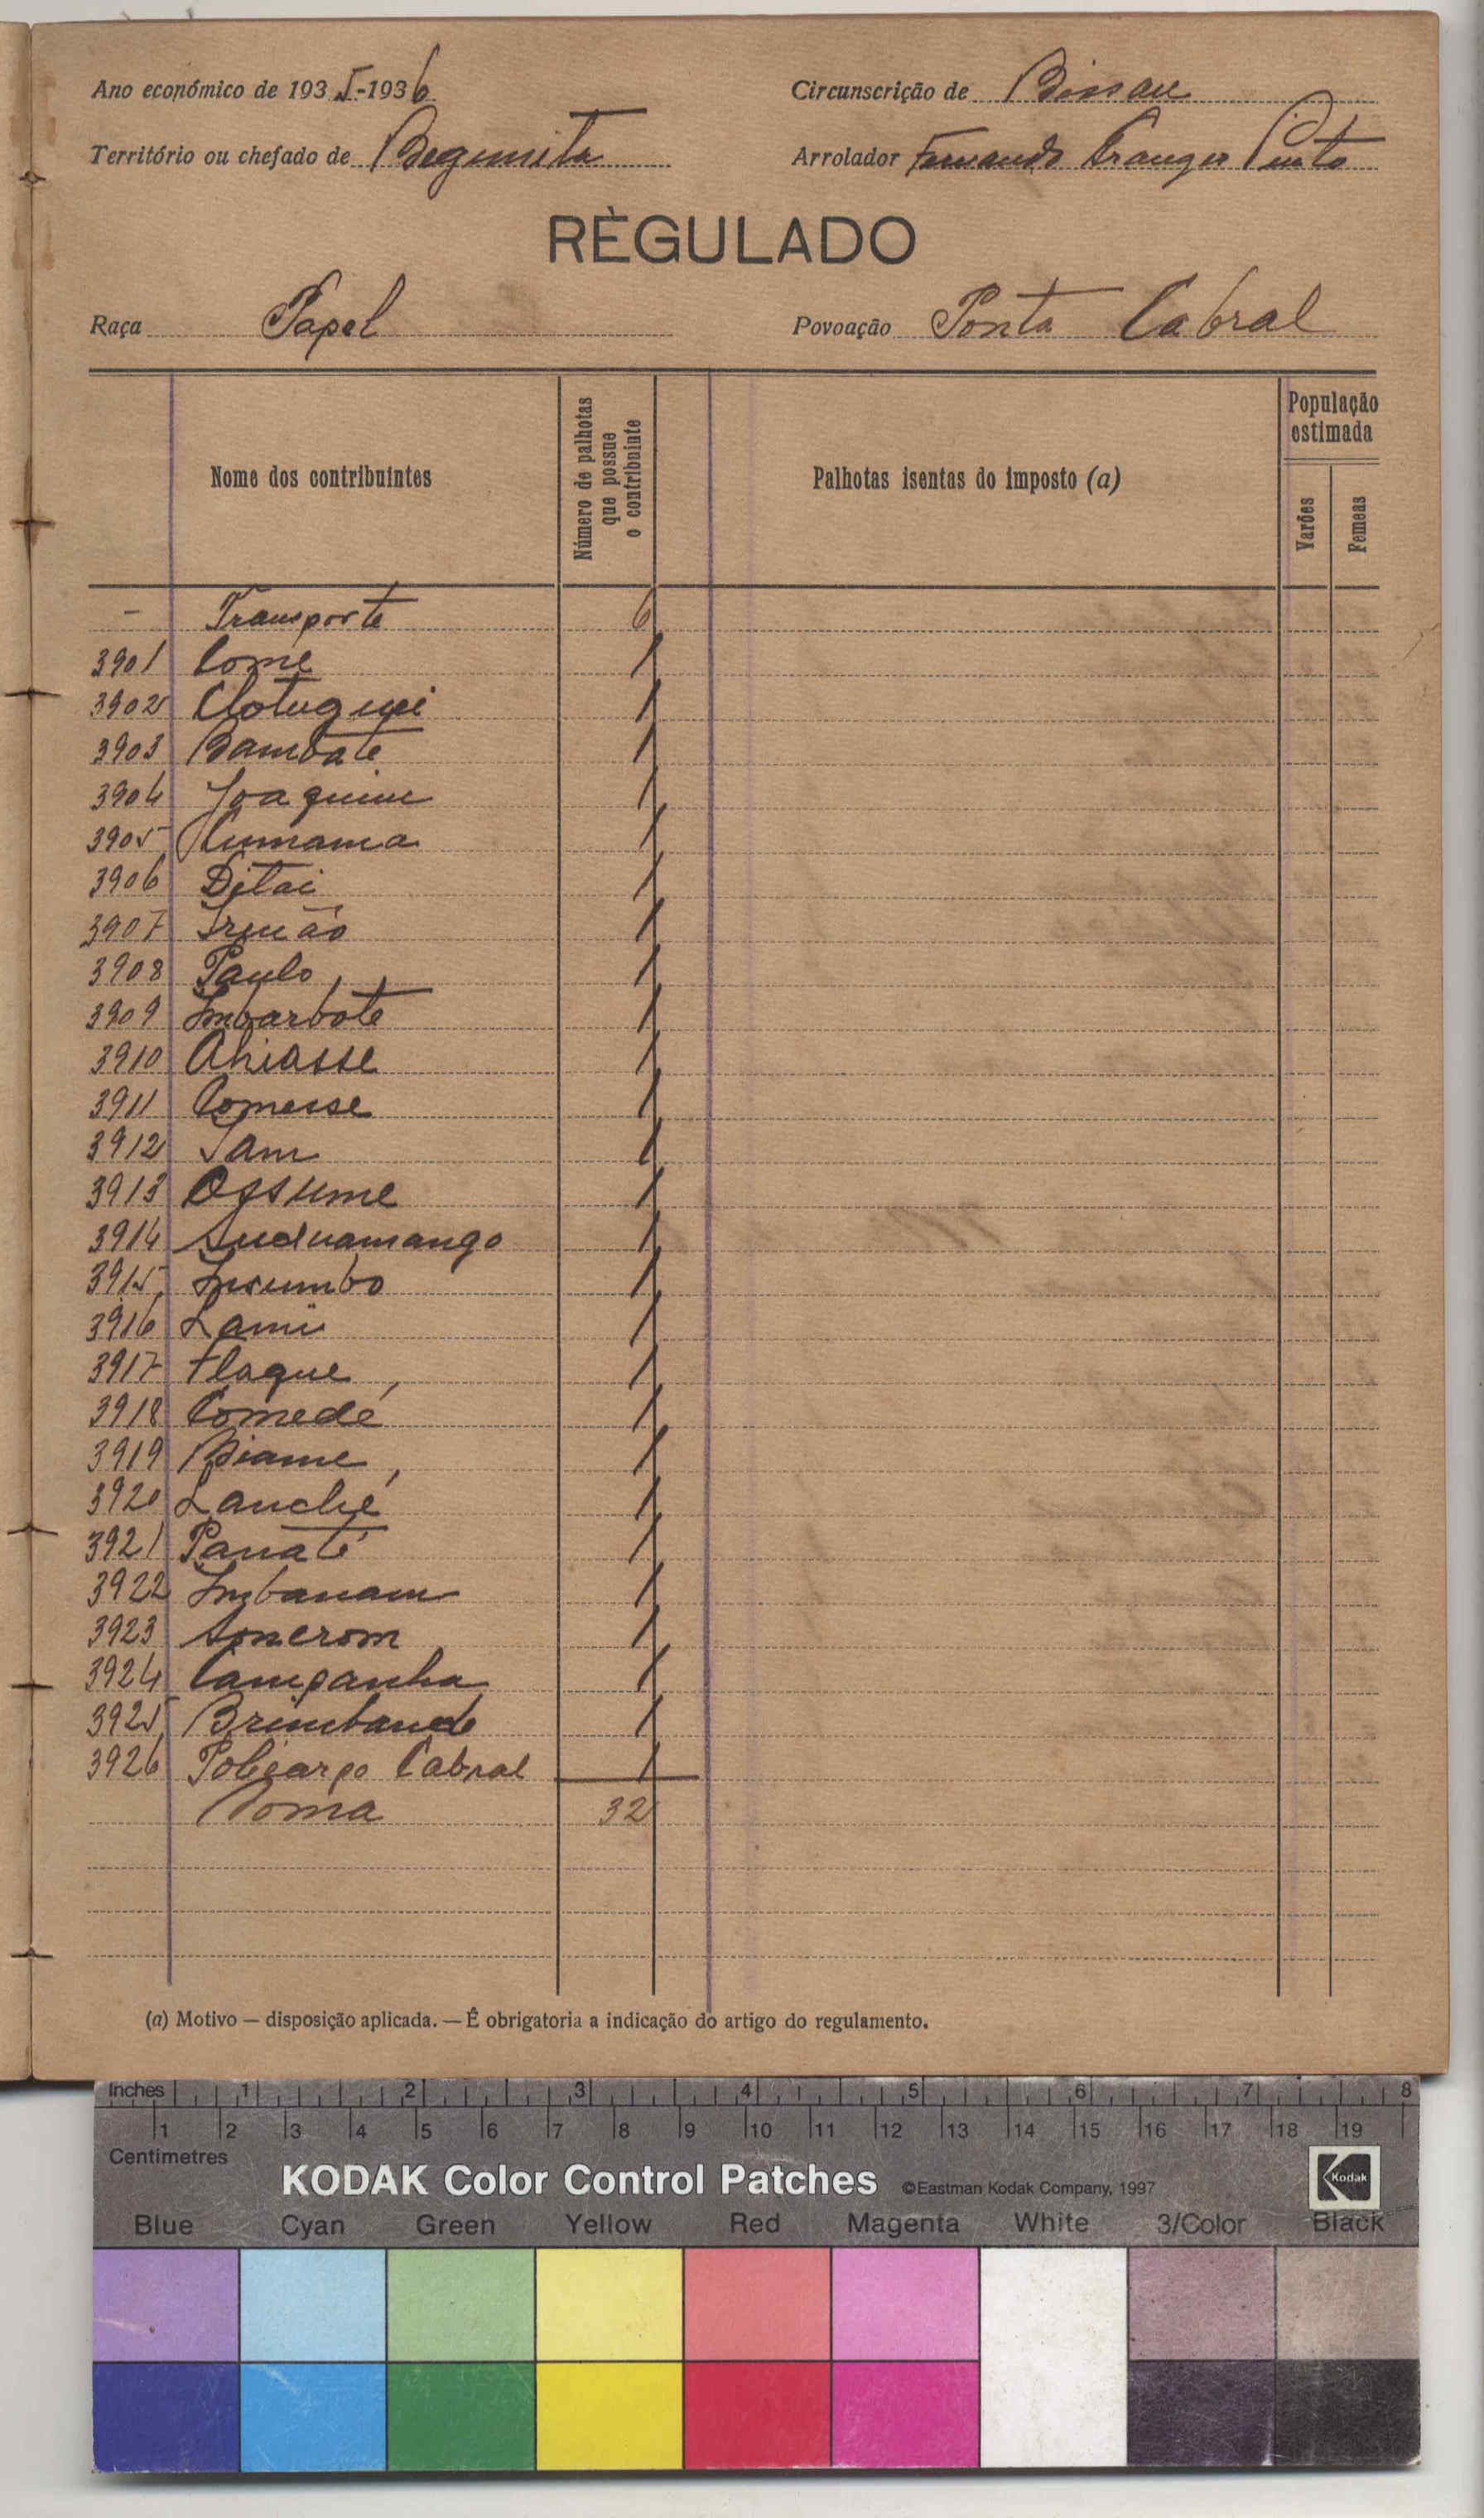 Ano económico de 1935-1936 Circunscrição de Bissau
Território ou chefado de Begimita Arrolador Fernando Pinto
RÈGULADO
Raça Papel Povoação Ponta Cabral
Nome dos contribuintes Número de palhotas que possue o contribuinte Palhotas isentas do imposto (a) População estimada
Varões Femeas
- Transporte 6
3901 Comé 1
3902 1
3903 Bambate 1
3904 Joaquim 1
3905 Cumama 1
3906 Ditai 1
3907 Irmão 1
3908 Paulo 1
3909 Imbarbote 1
3910 Ahiasse 1
3911 Comesse 1
3912 Sam 1
3913 Ossume 1
3914 1
3915 Incumbo 1
3916 Lami 1
3917 Flaque 1
3918 Comedé 1
3919 Biame 1
3920 Lanché 1
3921 Panaté 1
3922 Imbanam 1
3923 1
3924 Campanha 1
3925 1
3926 Policarpo Cabral 1
Soma 32
(a) Motivo — disposição aplicada. — Ê obrigatoria a indicação do artigo do regulamento.
Inches 1 2 3 4 5 6 7 8
1 2 3 4 5 6 7 8 9 10 11 12 13 14 15 16 17 18 19
Centimetres
KODAK Color Control Patches ©Eastman Kodak Company, 1997 Kodak
Blue Cyan Green Yellow Red Magenta White 3/Color Black